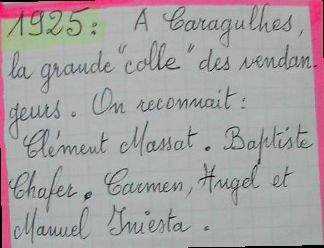 1925: A Caragulhes,
la grande "colle" des vendan-
geurs. On reconnait:
Clément Massat. Baptiste
Chafer. Carmen, Angel et
Manuel Iniesta.